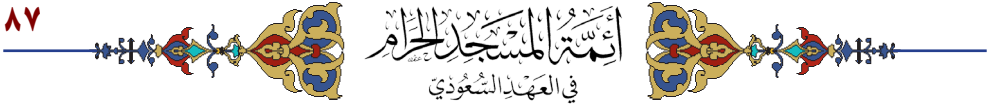 ٨٧
أَئِمَّةُ المَسْجِدِ الحَرَامِ
في العَهْدِ السُّعُودِيّ